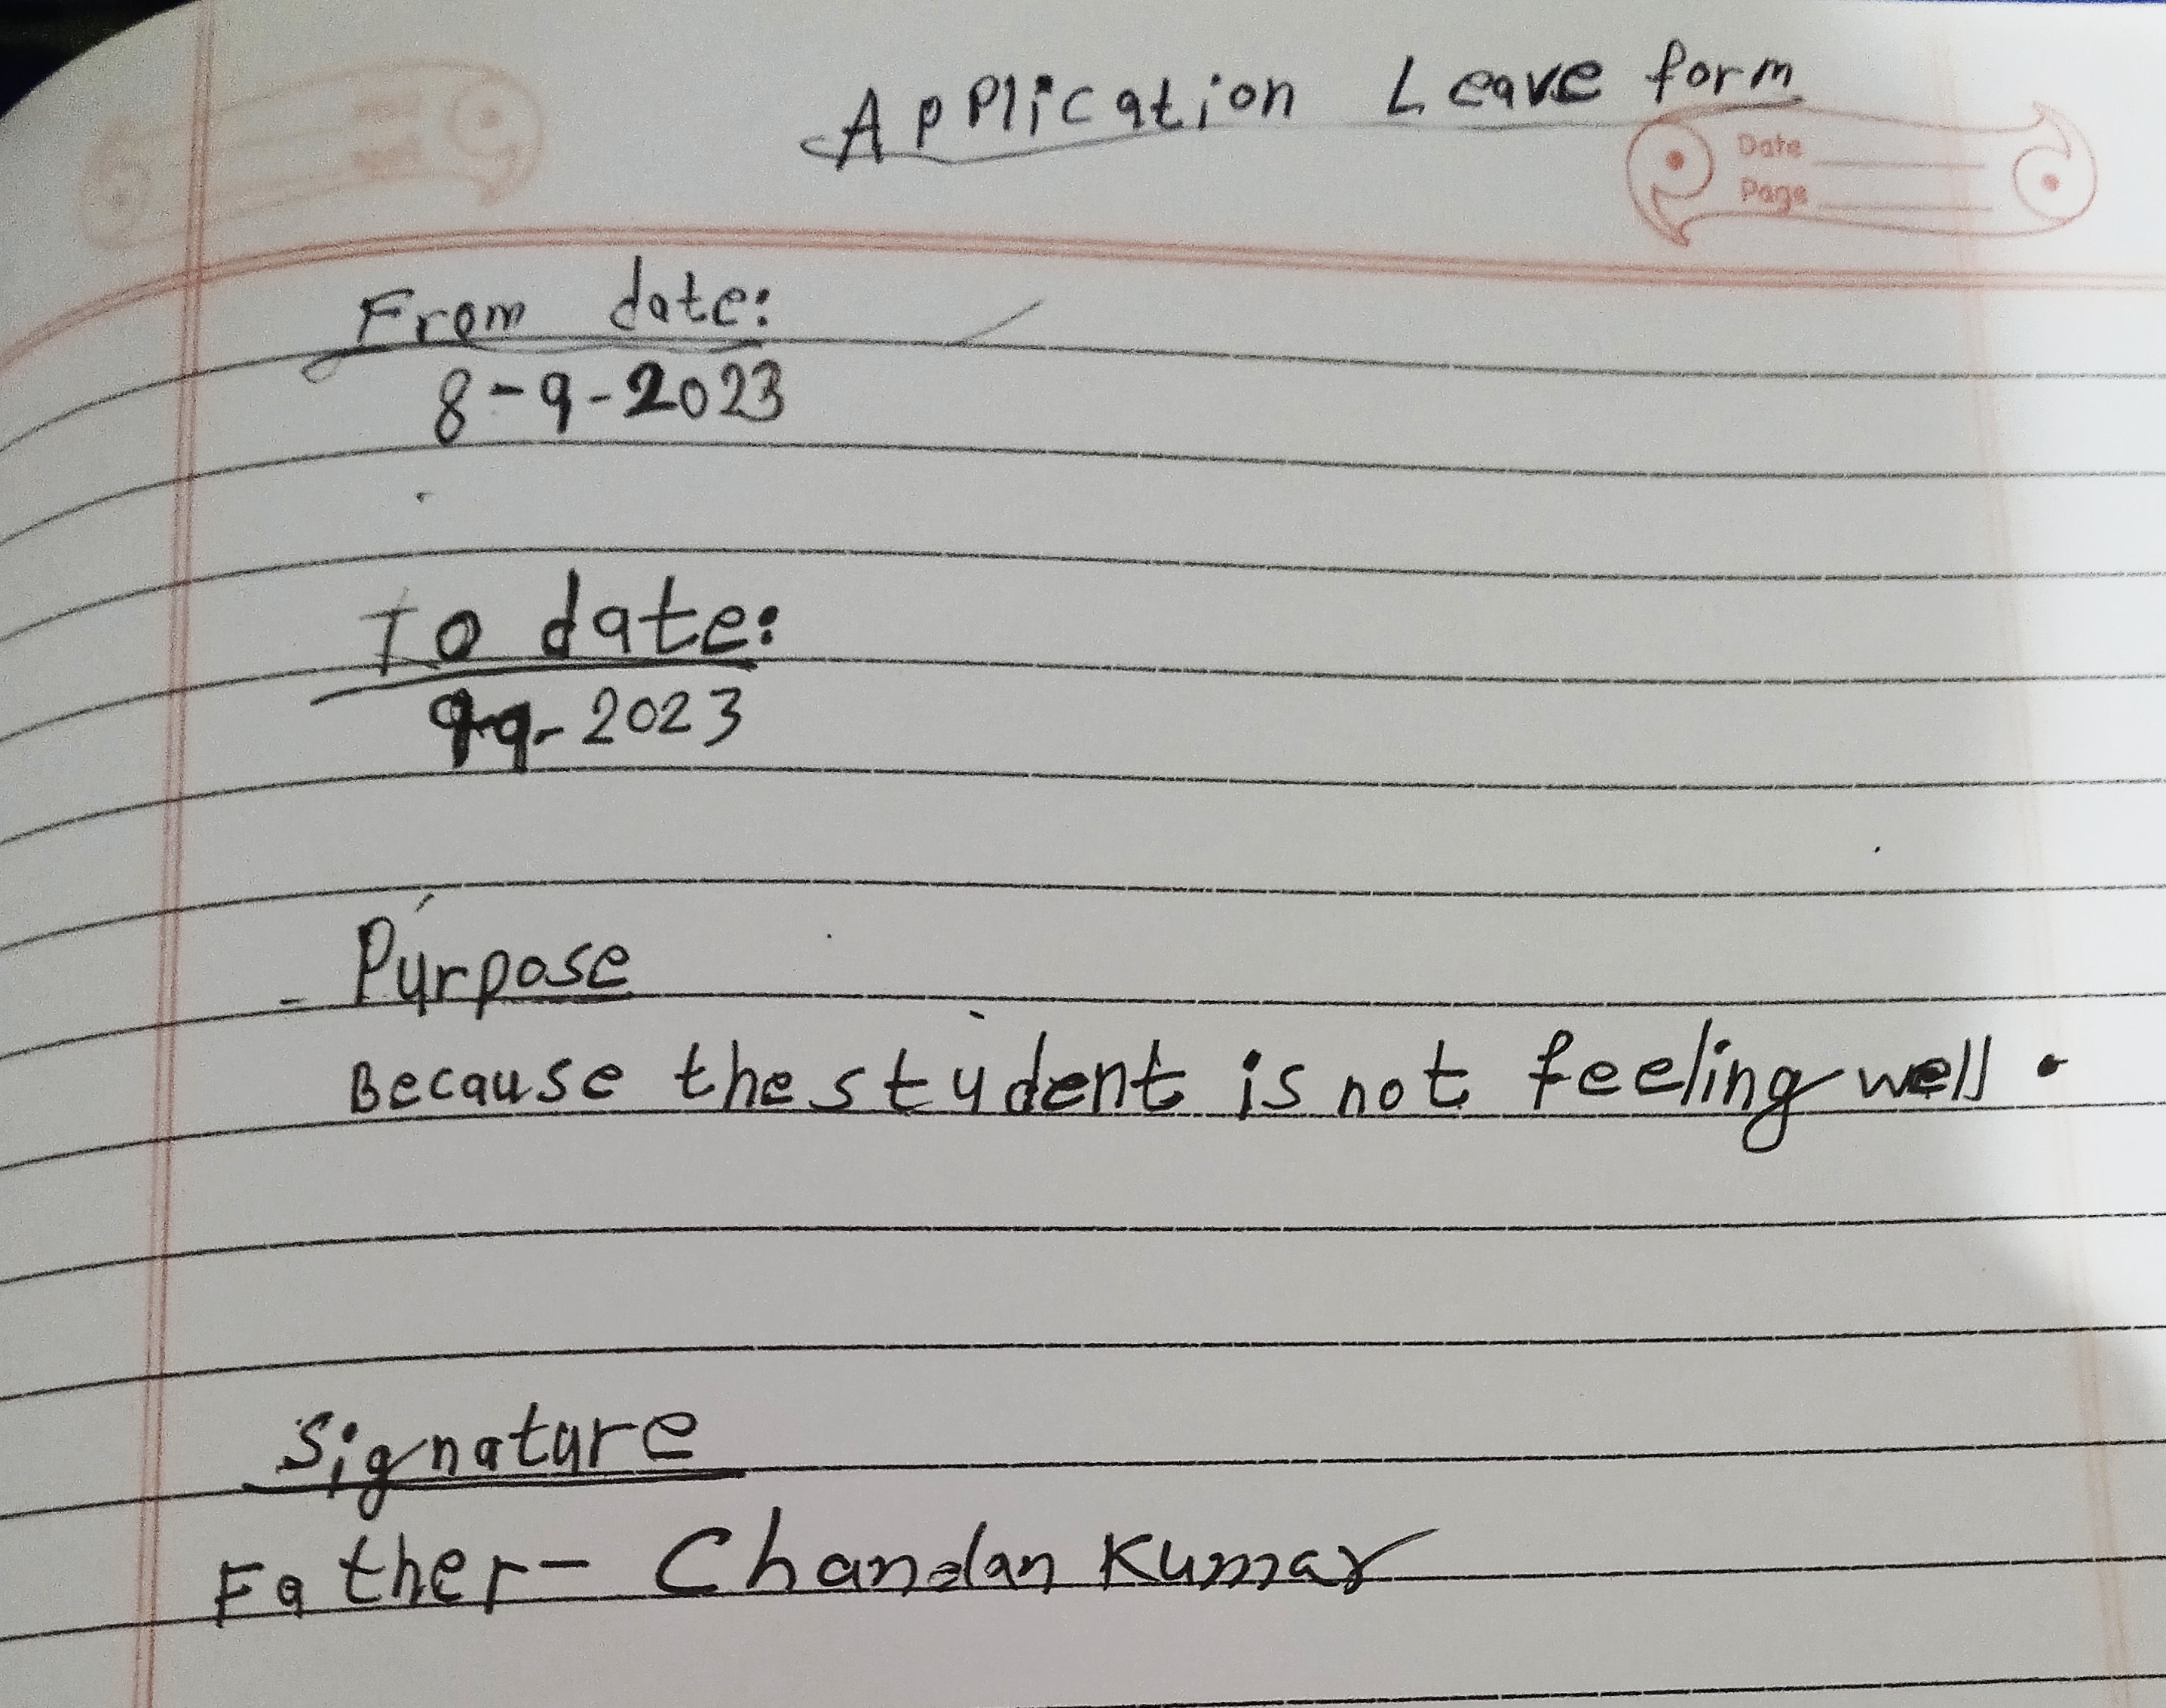 Application Leave form
Date
Page
From date:
8-9-2023
To date:
9-9-2023
Purpose
Because the student is not feeling well.
Signature
Father- Chandan Kumar